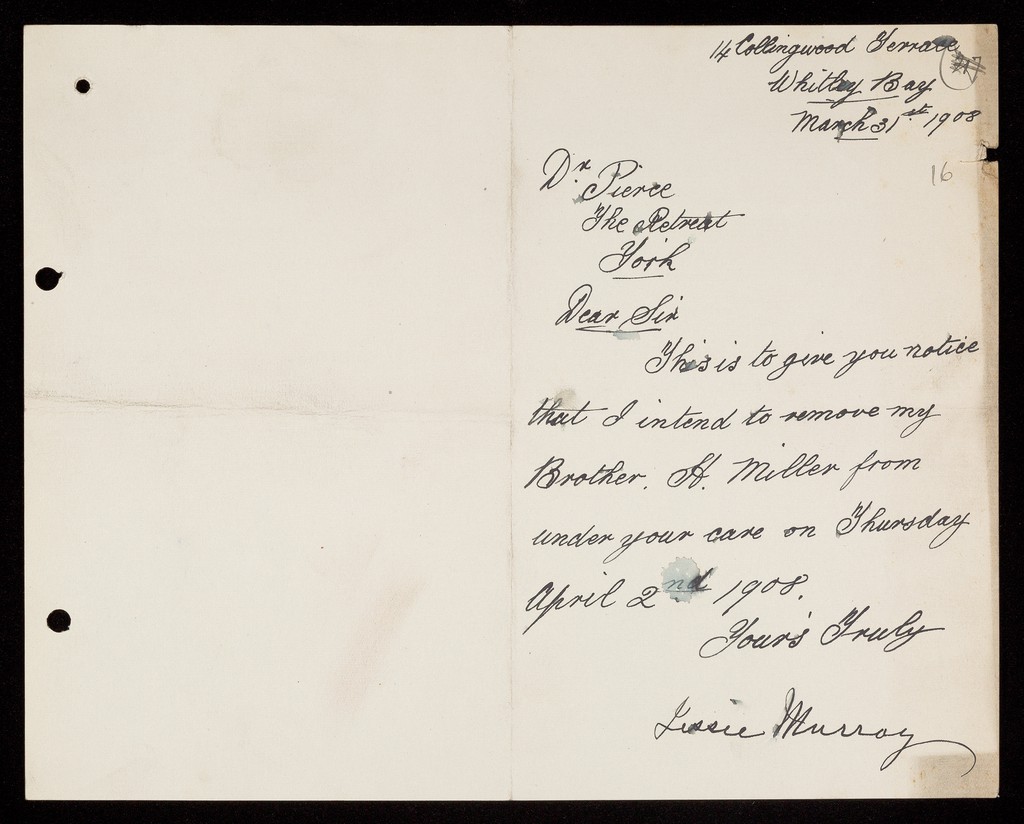 14 Collingwood Terrace
Whitley Bay
March 31st 1908
16
Dr. Pierce
The Retreat
York
Dear Sir
This is to give you notice
that I intend to remove my
Brother. H. Miller from
under your care on Thursday
April 2nd 1908.
Your's Truly
Jessie Murray